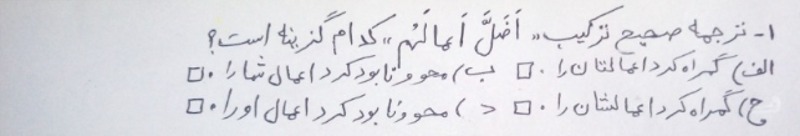 ۱- ترجمه صحیح ترکیب « أَضَلَّ أَعمالَهُم » کدام گزینه است؟
الف) گمراه کرد اعمالتان را . □ ب) محو و نابود کرد اعمال شما را . □
ج) گمراه کرد اعمالشان را . □ د) محو و نابود کرد اعمال او را . □